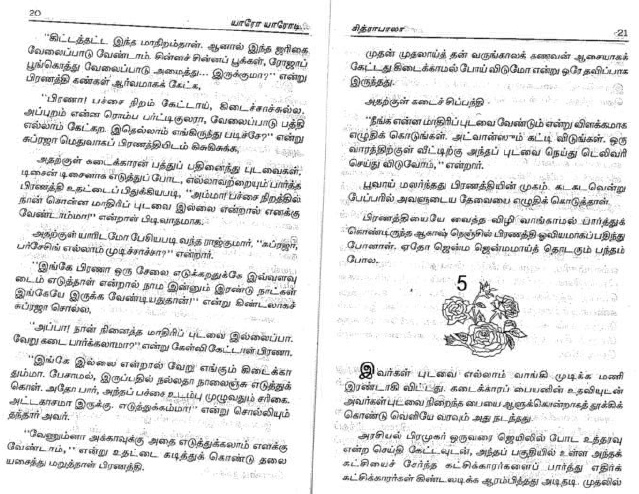 20
யாரோ யாரோடி
"கிட்டத்தட்ட இந்த மாநிறம்தான். ஆனால் இந்த ஜரிகை
வேலைப்பாடு வேண்டாம். சின்னச் சின்னப் பூக்கள், ரோஜாப்
பூங்கொத்து வேலைப்பாடு அமைத்து... இருக்குமா?" என்று
பிரணத்தி கண்கள் ஆர்வமாகக் கேட்க,
"பிரணா! பச்சை நிறம் கேட்டாய், கிடைச்சாச்சுல்ல.
அப்புறம் என்ன ரொம்ப பர்ட்டிகுலரா, வேலைப்பாடு பத்தி
எல்லாம் கேட்கற. இதெல்லாம் எங்கிருந்து படிச்சே?" என்று
சுப்ரஜா மெதுவாகப் பிரணத்தியிடம் கிசுகிசுக்க,
அதற்குள் கடைக்காரன் பத்துப் பதினைந்து புடவைகள்.
டிசைன் டிசைனாக எடுத்துப் போட, எல்லாவற்றையும் பார்த்த
பிரணத்தி உதட்டைப் பிதுக்கியபடி, "அம்மா! பச்சை நிறத்தில்
நான் சொன்ன மாதிரிப் புடவை இல்லை என்றால் எனக்கு
வேண்டாம்மா!" என்றாள் பிடிவாதமாக.
அதற்குள் யாரிடமோ பேசியபடி வந்த ராஜ்குமார், "சுப்ரஜா,
பர்சேசிங் எல்லாம் முடிச்சாச்சா?" என்றார்.
"இங்கே பிரணா ஒரு சேலை எடுக்கறதுக்கே இவ்வளவு
டைம் எடுத்தாள் என்றால் நாம இன்னும் இரண்டு நாட்கள்
இங்கேயே இருக்க வேண்டியதுதான்!" என்று கிண்டலாகச்
சுப்ரஜா சொல்ல,
"அப்பா! நான் நினைத்த மாதிரிப் புடவை இல்லைப்பா.
வேறு கடை பார்க்கலாமா?" என்று கேள்வி கேட்டாள் பிரணா.
"இங்கே இல்லை என்றால் வேறு எங்கும் கிடைக்கா
தும்மா. பேசாமல், இருப்பதில் நல்லதா நாலைஞ்சு எடுத்துக்
கொள். அதோ பார், அந்தப் பச்சை உடம்பு முழுவதும் சரிகை.
அட்டகாசமா இருக்கு. எடுத்துக்கம்மா!" என்று சொல்லியும்
தந்தார் அவர்.
"வேணும்னா அக்காவுக்கு அதை எடுத்துக்கலாம் எனக்கு
வேண்டாம்," என்று உதட்டை கடித்துக் கொண்டு தலை
யசைத்து மறுத்தாள் பிரணத்தி.
சித்ராபாலா
21
முதன் முதலாய்த் தன் வருங்காலக் கணவன் ஆசையாகக்
கேட்டது கிடைக்காமல் போய் விடுமோ என்று ஒரே தவிப்பாக
இருந்தது.
அதற்குள் கடைச் சிப்பந்தி
"நீங்க என்ன மாதிரிப் புடவை வேண்டும் என்று விளக்கமாக
எழுதிக் கொடுங்கள். அட்வான்ஸும் கட்டி விடுங்கள். ஒரு
வாரத்திற்குள் வீட்டிற்கு அந்தப் புடவை நெய்து டெலிவரி
செய்து விடுவோம்," என்றார்.
பூவாய் மலர்ந்தது பிரணத்தியின் முகம். கடகடவென்று
பேப்பரில் அவளுடைய தேவையை எழுதிக் கொடுத்தாள்.
பிரணத்தியையே வைத்த விழி வாங்காமல் பார்த்துக்
கொண்டிருந்த ஆகாஷ் நெஞ்சில் பிரணத்தி ஓவியமாகப் பதிந்து
போனாள். ஏதோ ஜென்ம ஜென்மமாய்த் தொடரும் பந்தம்
போல.
5
இவர்கள் புடவை எல்லாம் வாங்கி முடிக்க மணி
இரண்டாகி விட்டது. கடைக்காரப் பையனின் உதவியுடன்
அவர்கள் புடவை நிறைந்த பையை ஆளுக்கொன்றாகத் தூக்கிக்
கொண்டு வெளியே வரவும் அது நடந்தது.
அரசியல் பிரமுகர் ஒருவரை ஜெயிலில் போட உத்தரவு
என்ற செய்தி கேட்டவுடன், அந்தப் பகுதியில் உள்ள அந்தக்
கட்சியைச் சேர்ந்த கட்சிக்காரர்களைப் பார்த்து எதிர்க்
கட்சிக்காரர்கள் கிண்டலடிக்க ஆரம்பித்தது அடிதடி. முதலில்